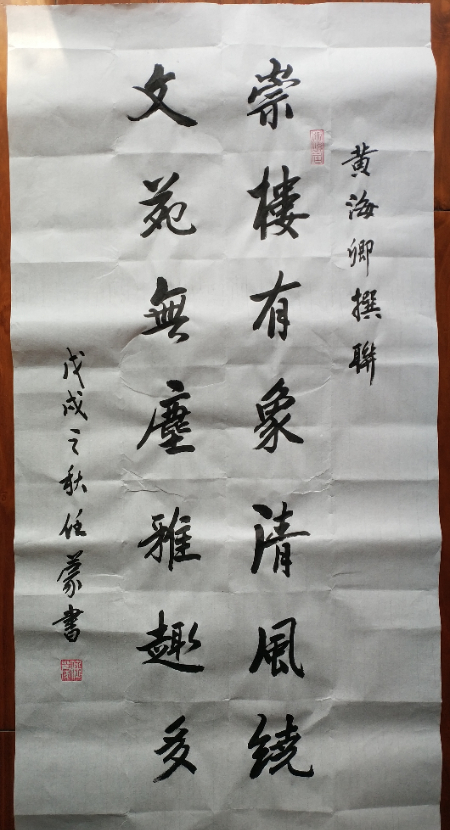 黄海卿撰聯
崇樓有象清風繞
文苑無塵雅趣多
戊戌之秋任蒙書